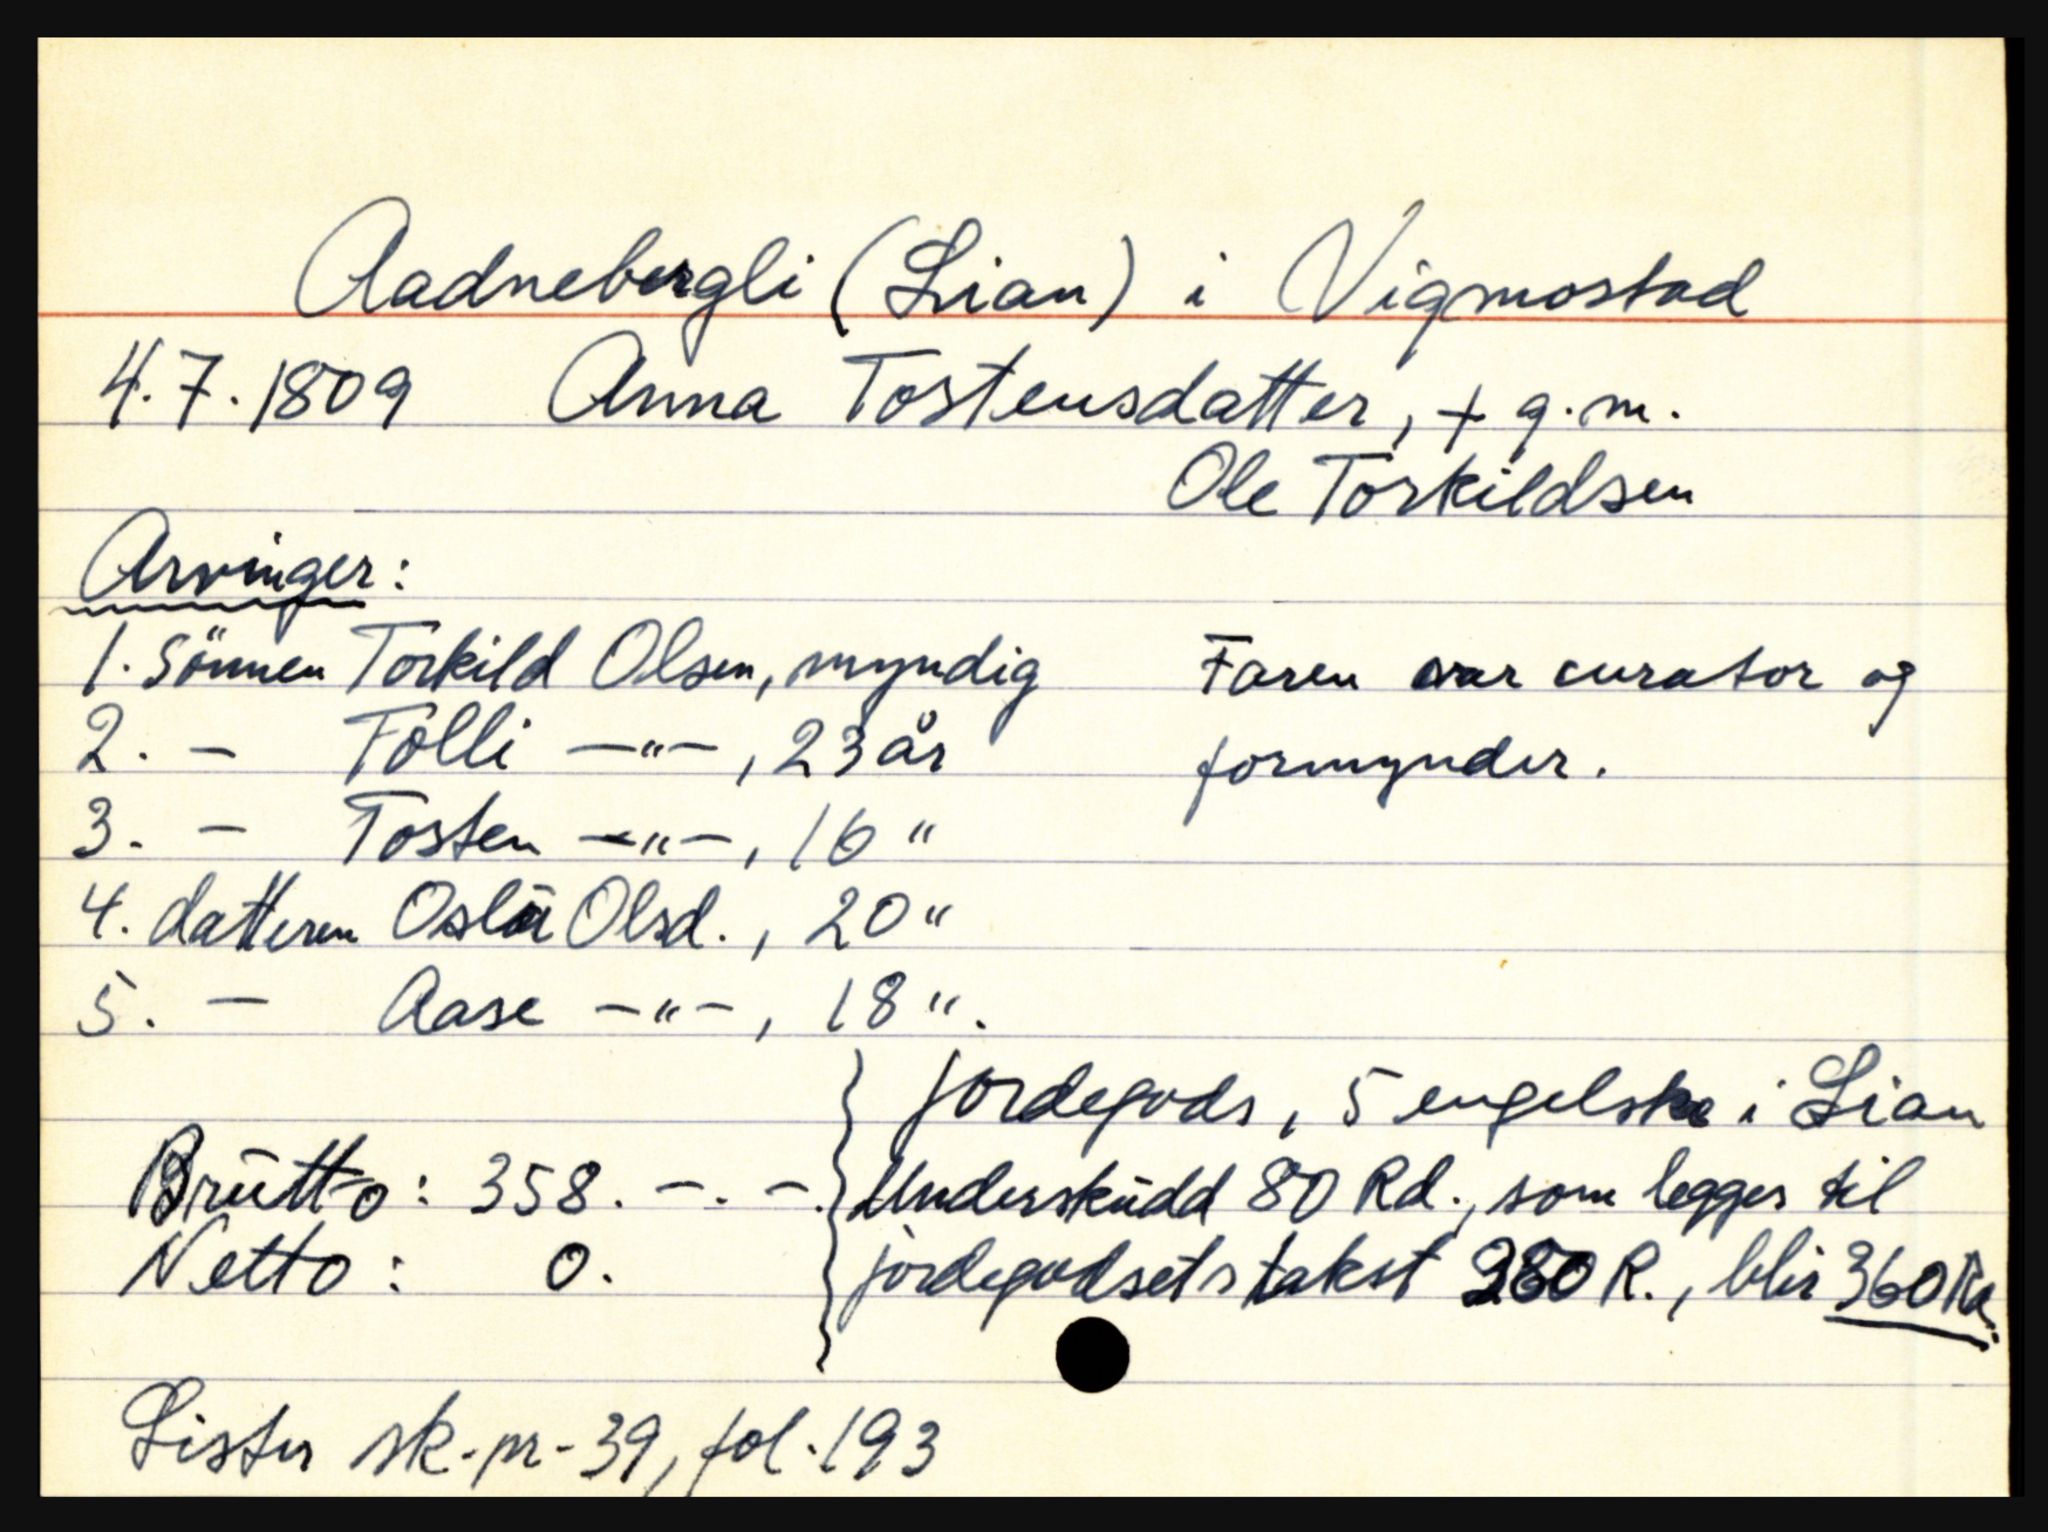 Aadnebergli (Lian) i Vigmostad
4.7.1809 Anna Tostensdatter, + g.m.
Ole Torkildsen
Arvinger:
1. Sönnen Torkild Olsen, myndig
2. - Tolli -"-, 23 år
3. - Tosten -"-, 16 "
4. datteren Osla Olsd., 20 "
5. - Aase -"-, 18 ".
Faren var curator og
formynder.
Brutto: 358. -. -.
Netto: 0.
jordegods, 5 engelske i Lian
Underskudd 80 Rd., som legges til
jordegodsets takst 280 R., blir 360 Rd.
Lister sk-pr-39, fol.193